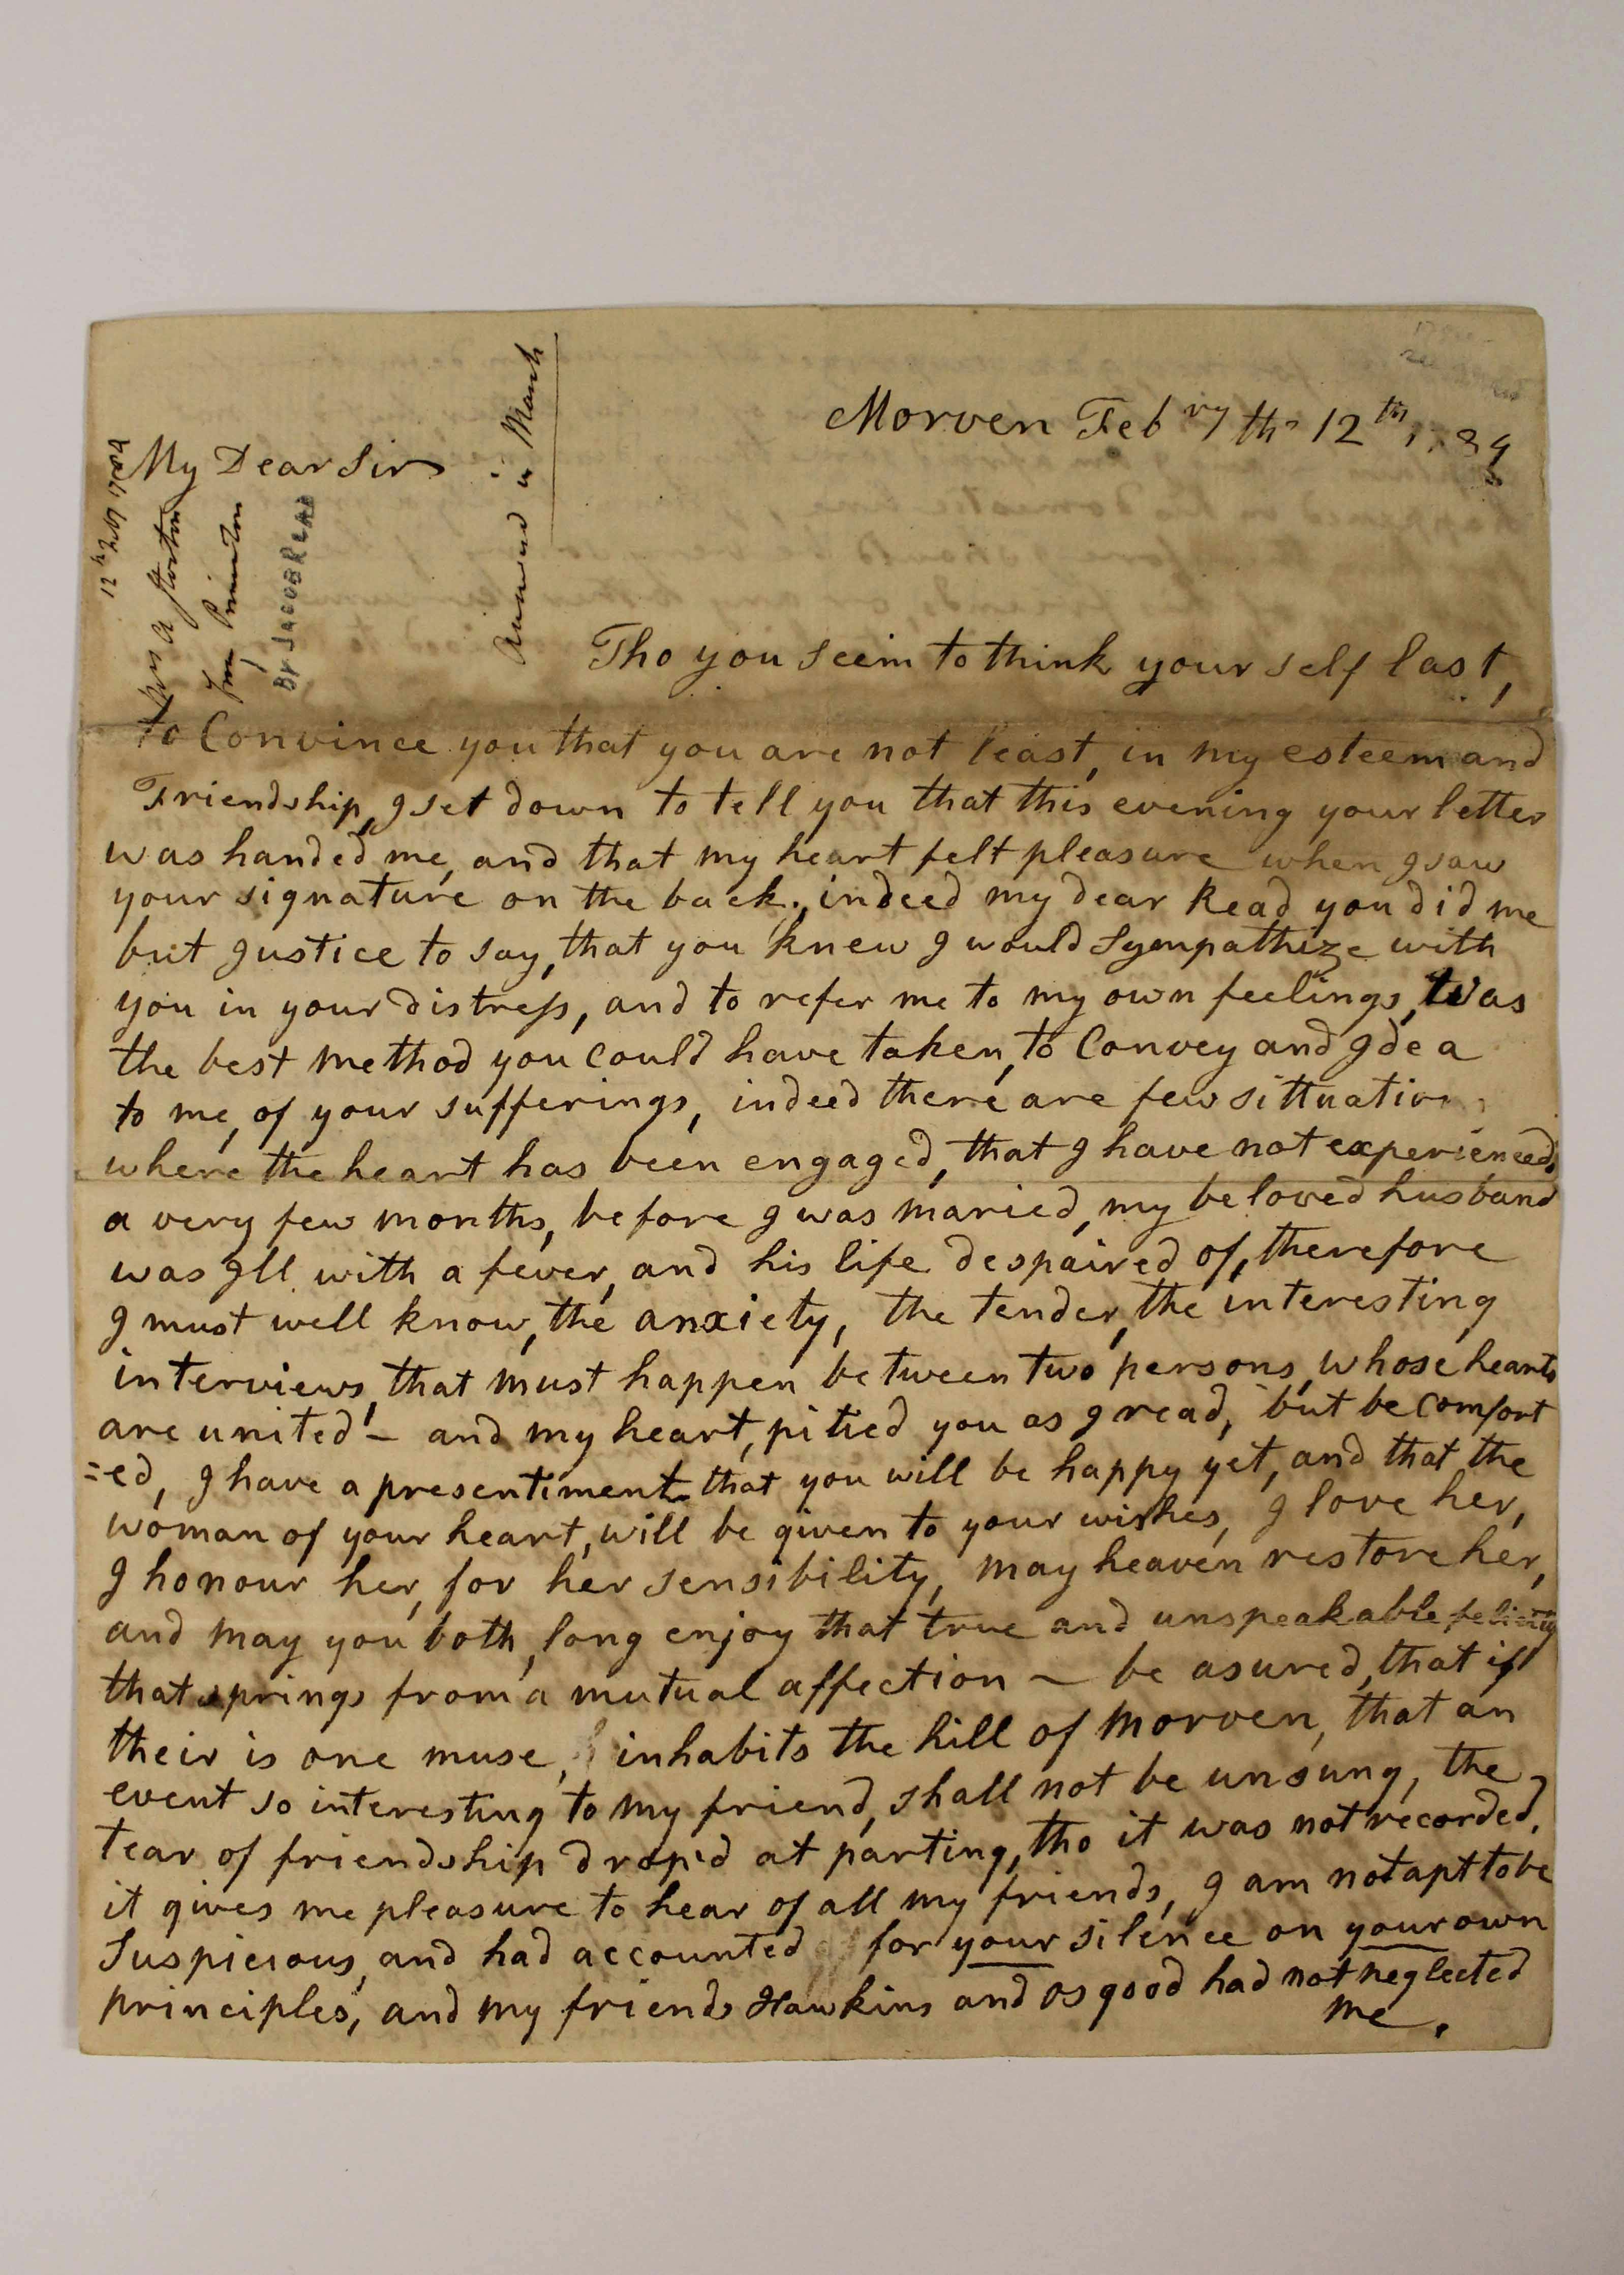 Morven Feb ry the 12th 1789
My Dear Sir
12th Feby 1789
Mrs A Stockton
from Princeton
By Jacob Read
Answered in March
Tho you seem to think your self last,
to Convince you that you are not least, in my esteem and
Friendship, I set down to tell you that this evening your letter
was handed me, and that my heart felt pleasure when I saw
your signature on the back., indeed my dear Read you did me
but Justice to say, that you knew I would Sympathize with
you in your distress, and to refer me to my own feelings, was
the best method you could have taken, to Convey and Idea
to me, of your sufferings, indeed there are few sittuation
where the heart has been engaged, that I have not experienced,
a very few months, before I was maried, my beloved husband
was Ill with a fever, and his life despaired of, therefore
I must well know, the anxiety, the tender, the interesting
interviews, that must happen between two persons, whose hearts
are united – and my heart, pitied you as I read, but be Comfort
=ed, I have a presentiment that you will be happy yet, and that the
woman of your heart, will be given to your wishes, I love her,
I honour her, for her sensibility, may heaven restore her,
and may you both, long enjoy that true and unspeakable felicity
that springs from a mutual affection – be asured, that if
their is one muse, inhabits the hill of Morven, that an
event so interesting to my friend, shall not be unsung, the
tear of friendship drop'd at parting, tho it was not recorded,
it gives me pleasure to hear of all my friends, I am not apt to be
Suspicious, and had accounted for your silence on your own
principles, and my friends Hawkins and osgood had not neglected
me.